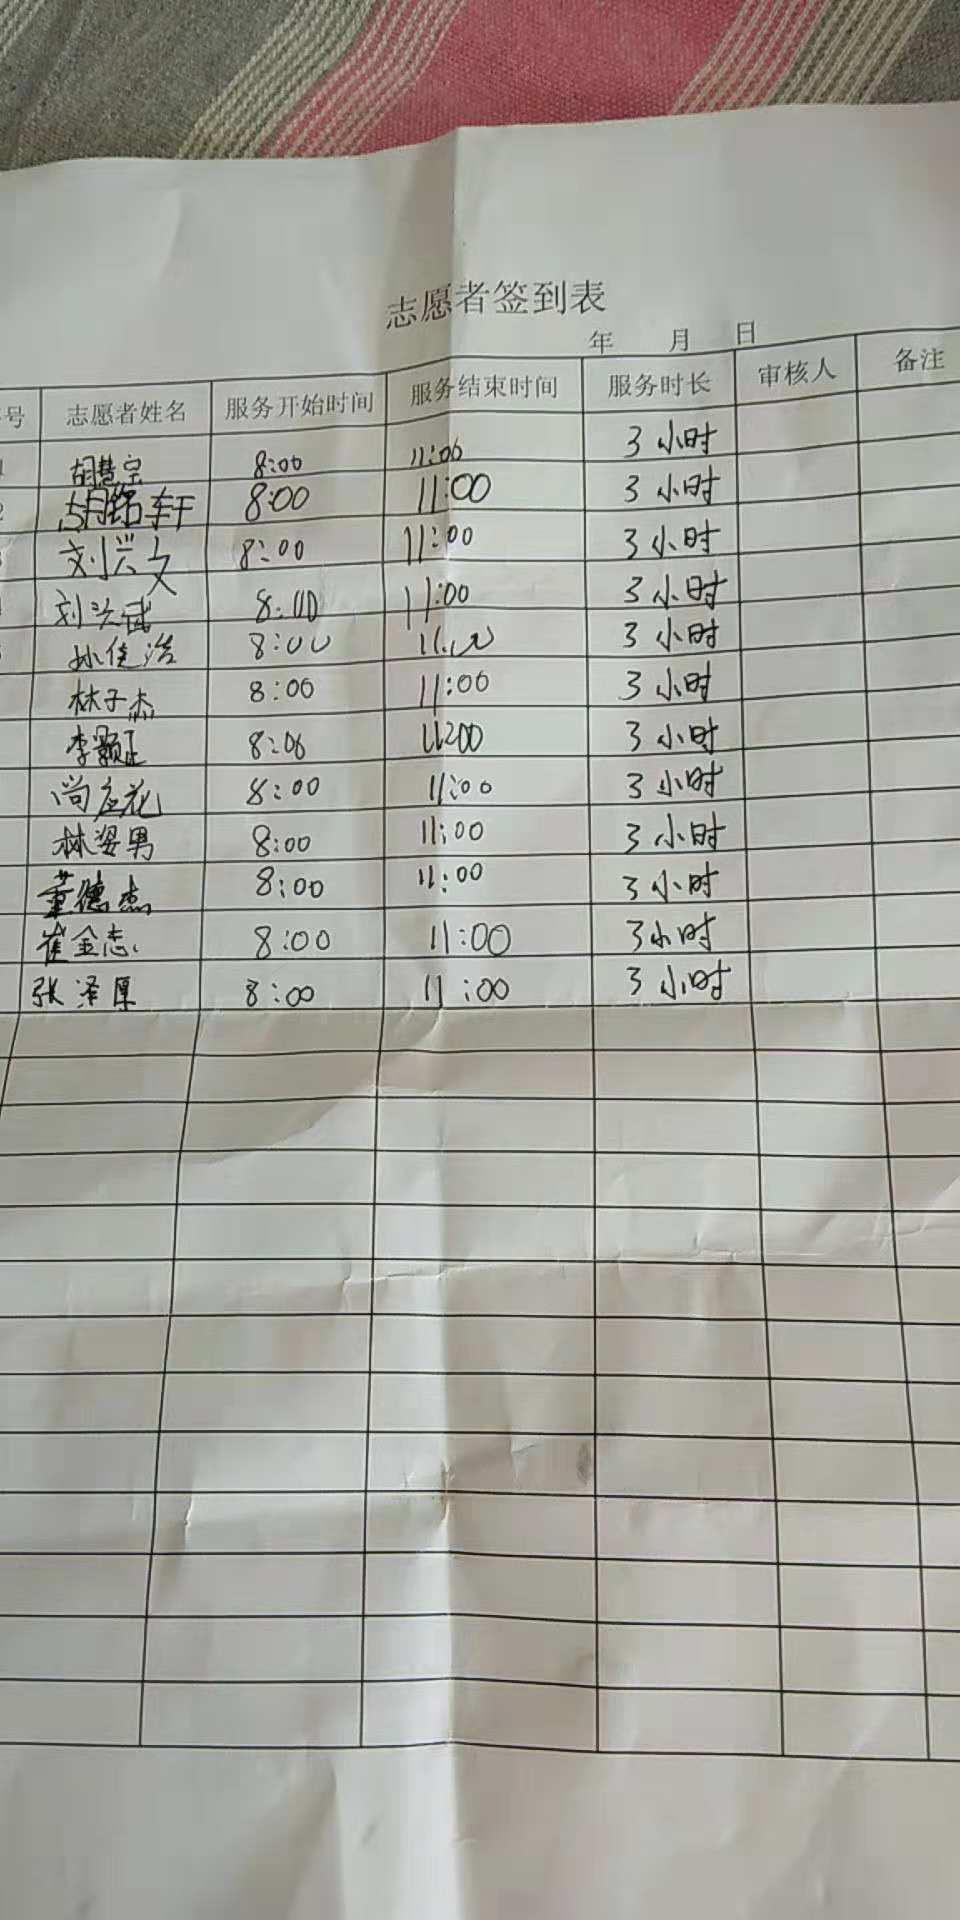 志愿者签到表
年 月 日
号 志愿者姓名 服务开始时间 服务结束时间 服务时长 审核人 备注
1 胡慧宗 8:00 11:00 3小时
2 胡铭轩 8:00 11:00 3小时
刘兴文 8:00 11:00 3小时
刘兴斌 8:00 11:00 3小时
孙佳浩 8:00 11:00 3小时
林子杰 8:00 11:00 3小时
李颢正 8:00 11:00 3小时
尚应花 8:00 11:00 3小时
林姿男 8:00 11:00 3小时
董德杰 8:00 11:00 3小时
崔金志 8:00 11:00 3小时
张泽厚 8:00 11:00 3小时